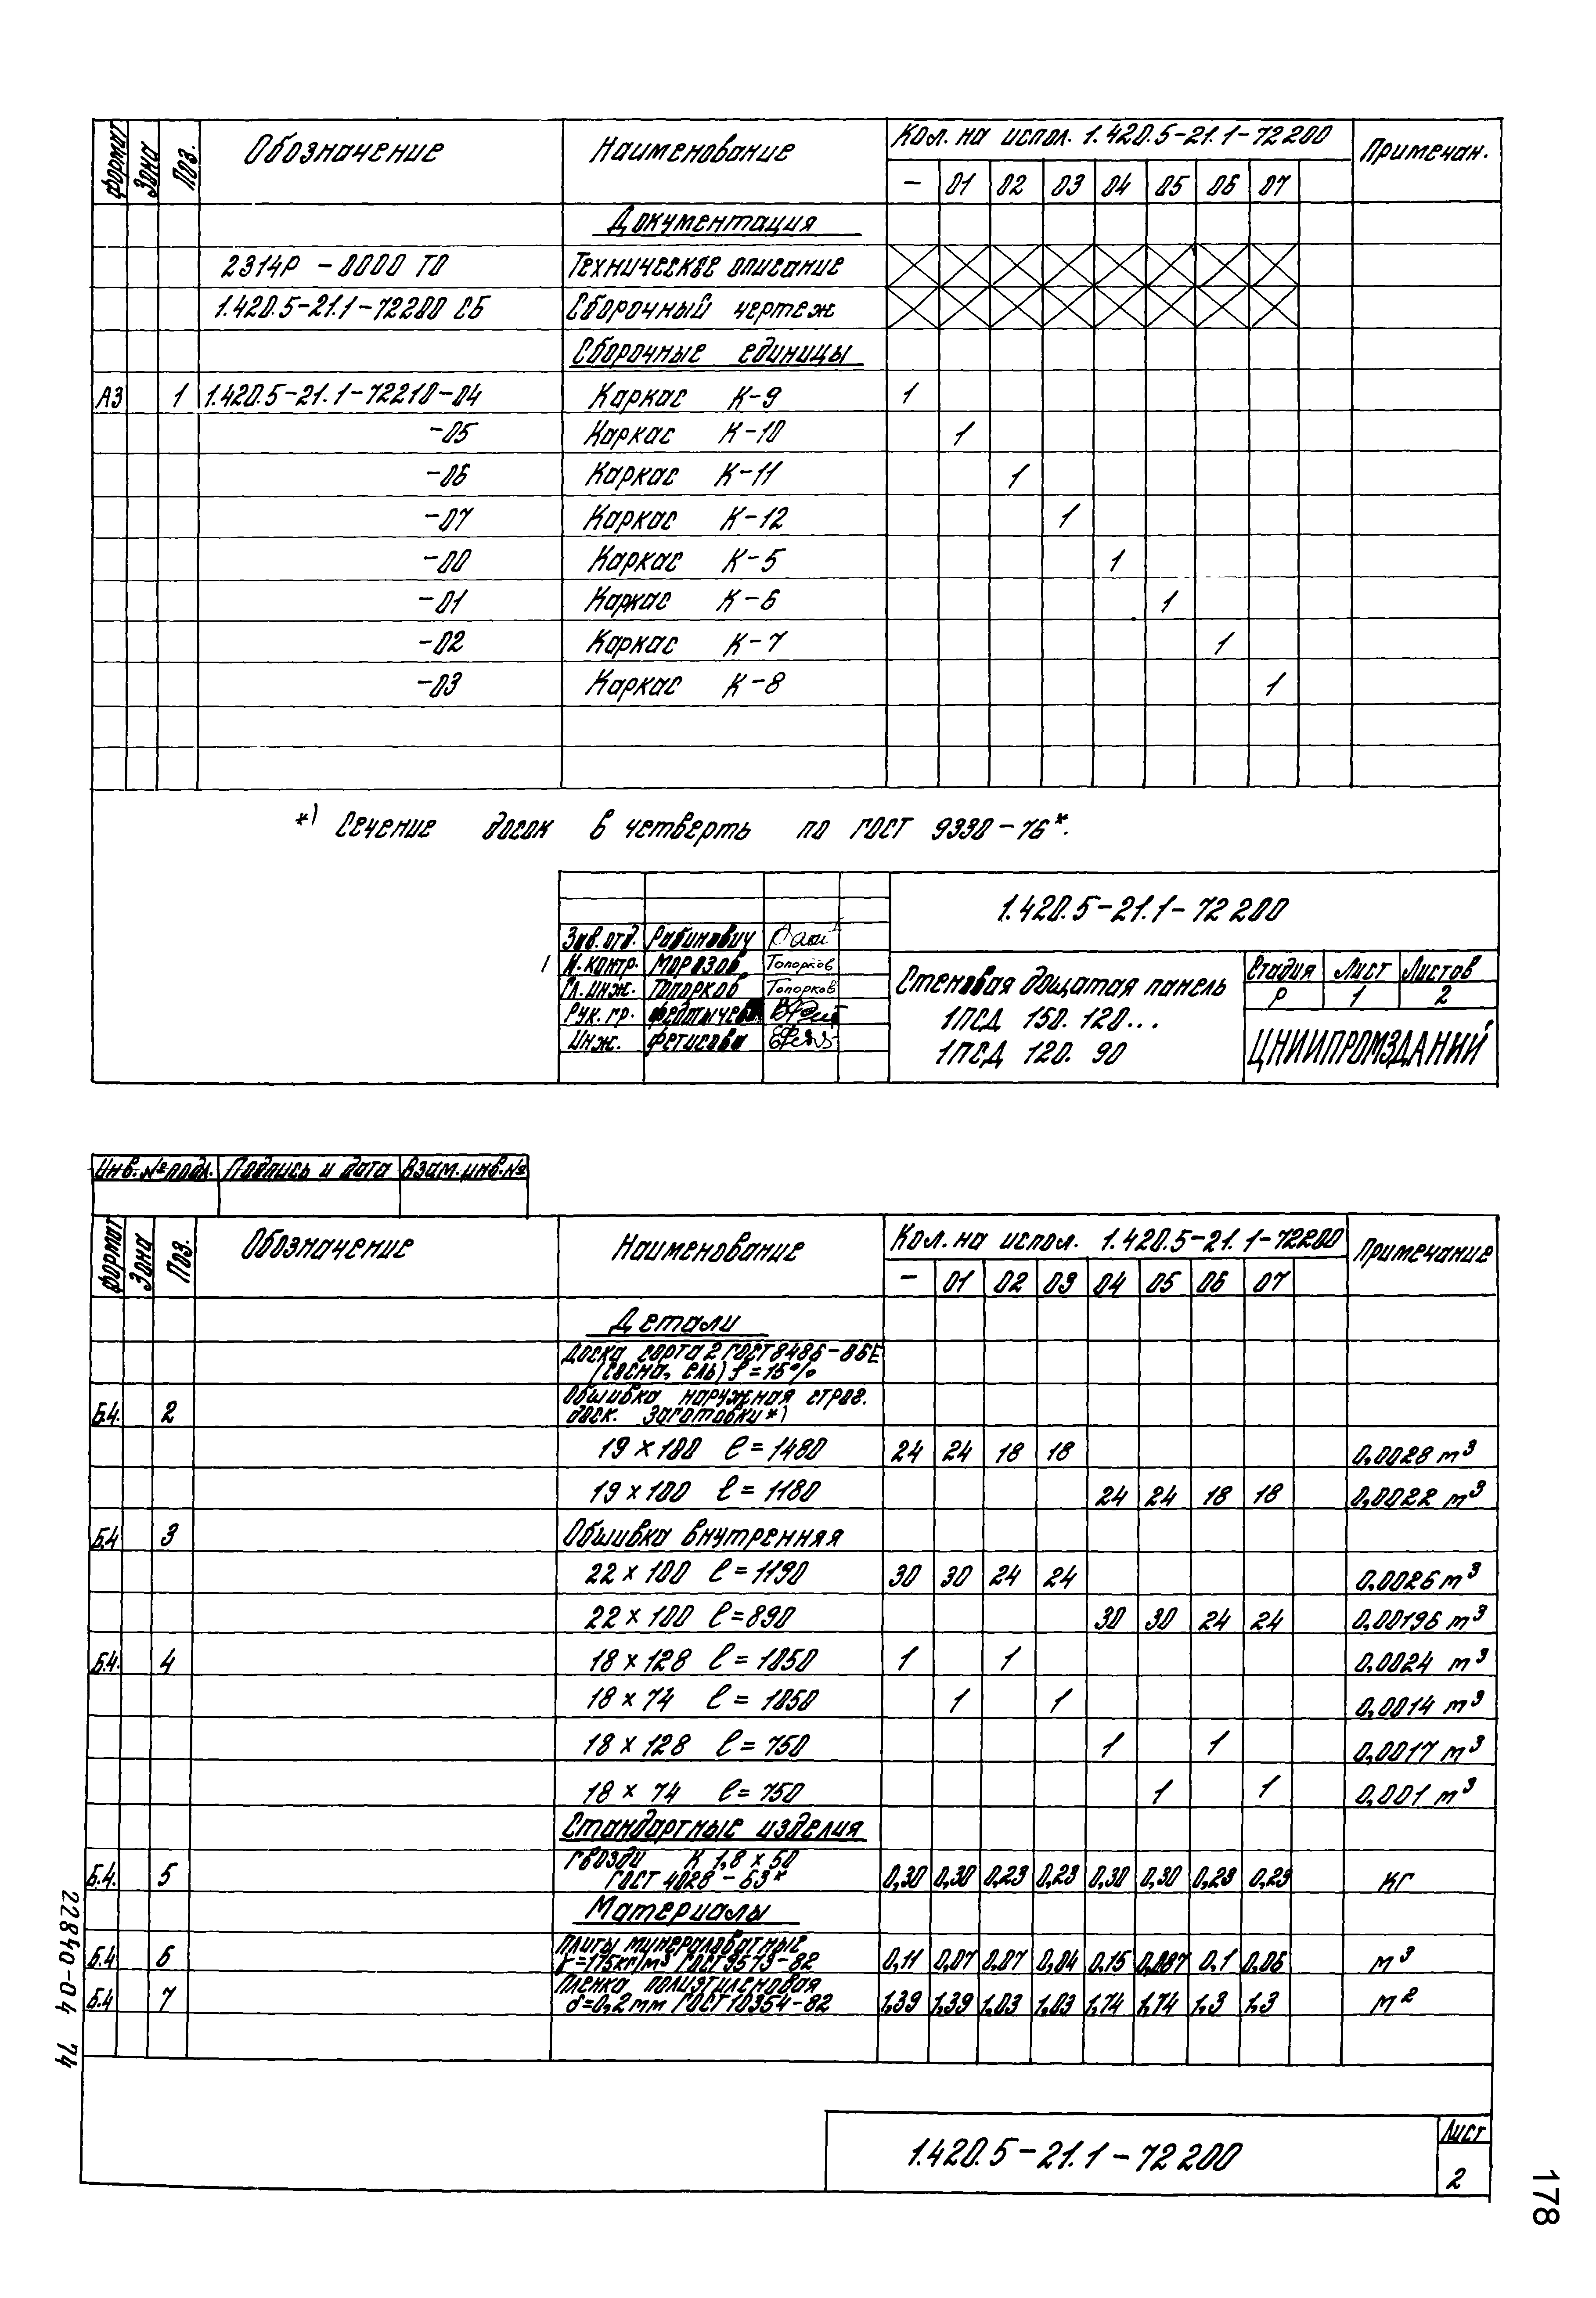 Формат Зона Поз. Обозначение Наименование Кол. на испол. 1.420.5-21.1-72200 Примечан.
— 01 02 03 04 05 06 07
Документация
2314Р - 0000 ТО Техническое описание
1.420.5-21.1-72200 СБ Сборочный чертеж
Сборочные единицы
А3 1 1.420.5-21.1-72210-04 Каркас К-9 1
-05 Каркас К-10 1
-06 Каркас К-11 1
-07 Каркас К-12 1
-00 Каркас К-5 1
-01 Каркас К-6 1
-02 Каркас К-7 1
-03 Каркас К-8 1
*) Сечение досок в четверть по ГОСТ 9330-76*.
1.420.5-21.1-72200
Зав. отд. Рабинович
Н. контр. Морозов Топорков
Гл. инж. Топорков Топорков
Рук. гр.
Инж. Фетисова
Стеновая дощатая панель
1ПСД 150. 120...
1ПСД 120. 90
Стадия Лист Листов
Р 1 2
ЦНИИПРОМЗДАНИЙ
Инв. № подл. Подпись и дата Взам. инв. №
Формат Зона Поз. Обозначение Наименование Кол. на испол. 1.420.5-21.1-72200 Примечание
— 01 02 03 04 05 06 07
Детали
Доска сорта 2 ГОСТ 8486-86Е
(сосна, ель) ρ=15%
Обшивка наружная строг.
Б.4. 2 доск. заготовки *)
19 x 100 ℓ = 1480 24 24 18 18 0,0028 м³
19 x 100 ℓ = 1180 24 24 18 18 0,0022 м³
Б.4 3 Обшивка внутренняя
22 x 100 ℓ = 1190 30 30 24 24 0,0026 м³
22 x 100 ℓ = 890 30 30 24 24 0,00196 м³
Б.4. 4 18 x 128 ℓ = 1050 1 1 0,0024 м³
18 x 74 ℓ = 1050 1 1 0,0014 м³
18 x 128 ℓ = 750 1 1 0,0017 м³
18 x 74 ℓ = 750 1 1 0,001 м³
Стандартные изделия
Гвозди К 1,8 x 50
Б.4. 5 ГОСТ 4028-63* 0,30 0,30 0,23 0,23 0,30 0,30 0,23 0,23 кг
Материалы
Плиты минераловатные
Б.4 6 γ=175кг/м³ ГОСТ 9573-82 0,11 0,07 0,07 0,04 0,15 0,087 0,1 0,06 м³
Пленка полиэтиленовая
Б.4 7 δ=0,2мм ГОСТ 10354-82 1,39 1,39 1,03 1,03 1,74 1,74 1,3 1,3 м²
22840-04 74
1.420.5-21.1-72200
Лист
2
178